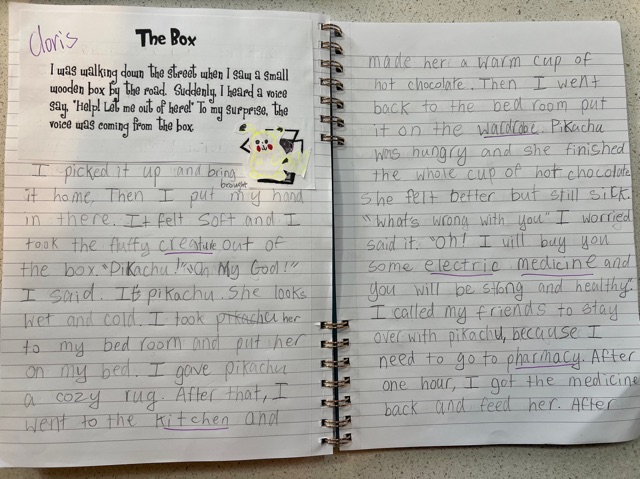 Cloris
The Box
I was walking down the street when I saw a small
wooden box by the road. Suddenly, I heard a voice
say, "Help! Let me out of here!" To my surprise, the
voice was coming from the box
I picked it up and bring
brought
it home. Then I put my hand
in there. It felt soft and I
took the fluffy creature out of
the box. "Pikachu!" "Oh My God!"
I said. It's pikachu. She looks
wet and cold. I took pikachu her
to my bed room and put her
on my bed. I gave pikachu
a cozy rug. After that, I
went to the kitchen and
made her a warm cup of
hot chocolate. Then I went
back to the bed room put
it on the wardrobe. Pikachu
was hungry and she finished
the whole cup of hot chocolate
she felt better but still sick.
"what's wrong with you" I worried
said it. "Oh! I will buy you
some electric medicine and
you will be stong and healthy.
I called my friends to stay
over with pikachu, because I
need to go to pharmacy. After
one hour, I got the medicine
back and feed her. After